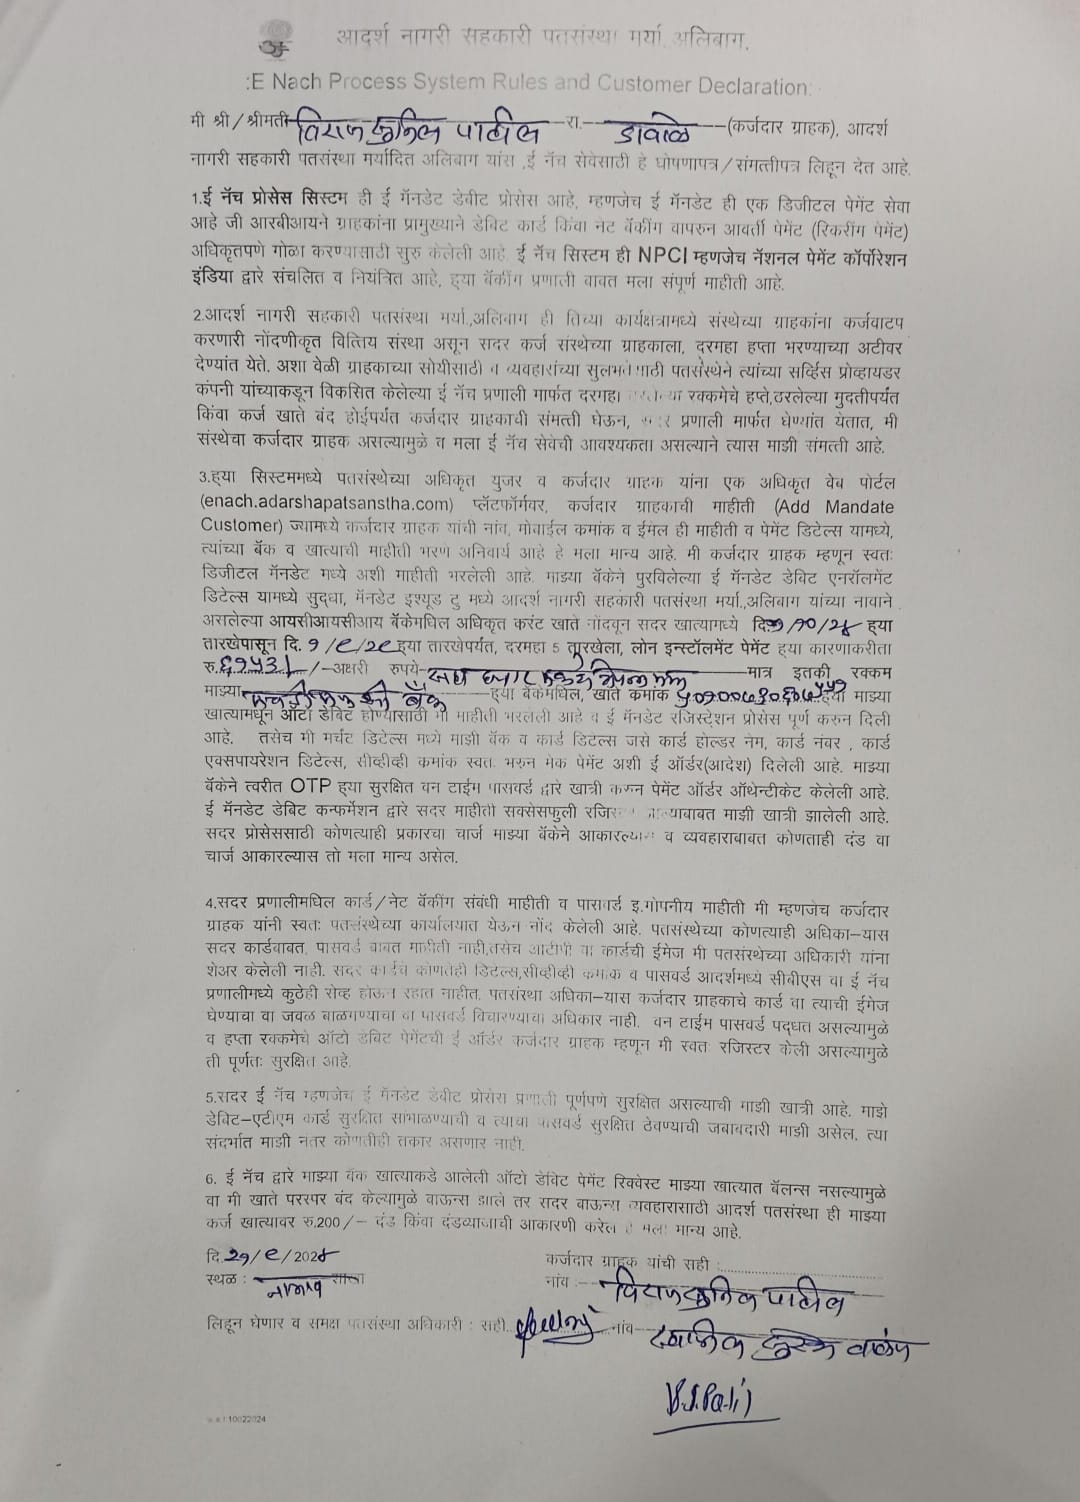 आदर्श नागरी सहकारी पतसंस्था मर्या. अलिबाग.
:E Nach Process System Rules and Customer Declaration:
मी श्री/श्रीमती विराज सुनिल पाटील रा. डावाळे (कर्जदार ग्राहक), आदर्श
नागरी सहकारी पतसंस्था मर्यादित अलिबाग यांस ,ई नॅच सेवेसाठी हे घोषणापत्र/संमत्तीपत्र लिहून देत आहे.
1.ई नॅच प्रोसेस सिस्टम ही ई मॅनडेट डेबीट प्रोसेस आहे, म्हणजेच ई मॅनडेट ही एक डिजीटल पेमेंट सेवा
आहे जी आरबीआयने ग्राहकांना प्रामुख्याने डेबिट कार्ड किंवा नेट बॅकींग वापरुन आवर्ती पेमेंट (रिकरींग पेमेंट)
अधिकृतपणे गोळा करण्यासाठी सुरु केलेली आहे. ई नॅच सिस्टम ही NPCI म्हणजेच नॅशनल पेमेंट कॉर्पोरेशन
इंडिया द्वारे संचलित व नियंत्रित आहे, ह्या बॅकींग प्रणाली बाबत मला संपूर्ण माहीती आहे.
2.आदर्श नागरी सहकारी पतसंस्था मर्या.,अलिबाग ही तिच्या कार्यक्षत्रामध्ये संस्थेच्या ग्राहकांना कर्जवाटप
करणारी नोंदणीकृत वित्तिय संस्था असून सदर कर्ज संस्थेच्या ग्राहकाला, दरमहा हप्ता भरण्याच्या अटीवर
देण्यांत येते. अशा वेळी ग्राहकाच्या सोयीसाठी व व्यवहारांच्या सुलभतेसाठी पतसंस्थेने त्यांच्या सर्व्हिस प्रोव्हायडर
कंपनी यांच्याकडून विकसित केलेल्या ई नॅच प्रणाली मार्फत दरमहा रक्कमेचे हप्ते,ठरलेल्या मुदतीपर्यंत
किंवा कर्ज खाते बंद होईपर्यंत कर्जदार ग्राहकाची संमत्ती घेऊन, सदर प्रणाली मार्फत घेण्यांत येतात, मी
संस्थेचा कर्जदार ग्राहक असल्यामुळे व मला ई नॅच सेवेची आवश्यकता असल्याने त्यास माझी संमत्ती आहे.
3.ह्या सिस्टममध्ये पतसंस्थेच्या अधिकृत युजर व कर्जदार ग्राहक यांना एक अधिकृत वेब पोर्टल
(enach.adarshapatsanstha.com) प्लॅटफॉर्मवर, कर्जदार ग्राहकाची माहीती (Add Mandate
Customer) ज्यामध्ये कर्जदार ग्राहक यांची नांव, मोबाईल कमांक व ईमेल ही माहीती व पेमेंट डिटेल्स यामध्ये,
त्यांच्या बॅक व खात्याची माहीती भरणे अनिवार्य आहे हे मला मान्य आहे. मी कर्जदार ग्राहक म्हणून स्वतः
डिजीटल मॅनडेट मध्ये अशी माहीती भरलेली आहे. माझ्या बॅकेने पुरविलेल्या ई मॅनडेट डेबिट एनरॉलमेंट
डिटेल्स यामध्ये सुद्धा, मॅनडेट इश्यूड टु मध्ये आदर्श नागरी सहकारी पतसंस्था मर्या.,अलिबाग यांच्या नावाने
असलेल्या आयसीआयसीआय बॅकेमधिल अधिकृत करंट खाते नोंदवून सदर खात्यामध्ये दि. /10/24 ह्या
तारखेपासून दि. 9/९/२९ ह्या तारखेपर्यंत, दरमहा 5 तारखेला, लोन इन्स्टॉलमेंट पेमेंट ह्या कारणाकरीता
रु. ६१५३/ /-अक्षरी रुपये- सहा हजार एकशे त्रेपन्न मात्र इतकी रक्कम
माझ्या बँक ह्या बॅकेमधिल, खाते कमांक ह्या माझ्या
खात्यामधून ऑटो डेबिट होण्यासाठी मी माहीती भरलेली आहे व ई मॅनडेट रजिस्ट्रेशन प्रोसेस पूर्ण करुन दिली
आहे. तसेच मी मर्चंट डिटेल्स मध्ये माझी बॅक व कार्ड डिटेल्स जसे कार्ड होल्डर नेम, कार्ड नंबर , कार्ड
एक्सपायरेशन डिटेल्स, सीव्हीव्ही कमांक स्वतः भरुन मेक पेमेंट अशी ई ऑर्डर(आदेश) दिलेली आहे. माझ्या
बॅकेने त्वरीत OTP ह्या सुरक्षित वन टाईम पासवर्ड द्वारे खात्री करुन पेमेंट ऑर्डर ऑथेन्टीकेट केलेली आहे.
ई मॅनडेट डेबिट कन्फर्मेशन द्वारे सदर माहीती सक्सेसफुली झाल्याबाबत माझी खात्री झालेली आहे.
सदर प्रोसेससाठी कोणत्याही प्रकारचा चार्ज माझ्या बॅकेने आकारल्यास व व्यवहाराबाबत कोणताही दंड वा
चार्ज आकारल्यास तो मला मान्य असेल.
4.सदर प्रणालीमधिल कार्ड/नेट बॅकींग संबंधी माहीती व पासवर्ड इ.गोपनीय माहीती मी म्हणजेच कर्जदार
ग्राहक यांनी स्वतः पतसंस्थेच्या कार्यालयात येऊन नोंद केलेली आहे. पतसंस्थेच्या कोणत्याही अधिका–यास
सदर कार्डबाबत, पासवर्ड बाबत माहीती नाही,तसेच ओटीपी वा कार्डची ईमेज मी पतसंस्थेच्या अधिकारी यांना
शेअर केलेली नाही. सदर कार्डचे कोणतेही डिटेल्स,सीव्हीव्ही कमांक व पासवर्ड आदर्शमध्ये सीबीएस वा ई नॅच
प्रणालीमध्ये कुठेही सेव्ह होऊन रहात नाहीत. पतसंस्था अधिका–यास कर्जदार ग्राहकाचे कार्ड वा त्याची ईमेज
घेण्याचा वा जवळ बाळगण्याचा वा पासवर्ड विचारण्याचा अधिकार नाही. वन टाईम पासवर्ड पद्धत असल्यामुळे
व हप्ता रक्कमेचे ऑटो डेबिट पेमेंटची ई ऑर्डर कर्जदार ग्राहक म्हणून मी स्वतः रजिस्टर केली असल्यामुळे
ती पूर्णतः सुरक्षित आहे.
5.सदर ई नॅच म्हणजेच ई मॅनडेट डेबीट प्रोसेस प्रणाली पूर्णपणे सुरक्षित असल्याची माझी खात्री आहे. माझे
डेबिट–एटीएम कार्ड सुरक्षित सांभाळण्याची व त्याचा पासवर्ड सुरक्षित ठेवण्याची जबाबदारी माझी असेल, त्या
संदर्भात माझी नंतर कोणतीही तकार असणार नाही.
6. ई नॅच द्वारे माझ्या बॅक खात्याकडे आलेली ऑटो डेबिट पेमेंट रिक्वेस्ट माझ्या खात्यात बॅलन्स नसल्यामुळे
वा मी खाते परस्पर बंद केल्यामुळे बाऊन्स झाले तर सदर बाऊन्स व्यवहारासाठी आदर्श पतसंस्था ही माझ्या
कर्ज खात्यावर रु.200/– दंड किंवा दंडव्याजाची आकारणी करेल हे मला मान्य आहे.
दि. 21/९/2024 कर्जदार ग्राहक यांची सही :
स्थळ : शाखा नांव :– विराज सुनिल पाटील
लिहून घेणार व समक्ष पतसंस्था अधिकारी : सही. नांव–
V.S.Patil
10022024